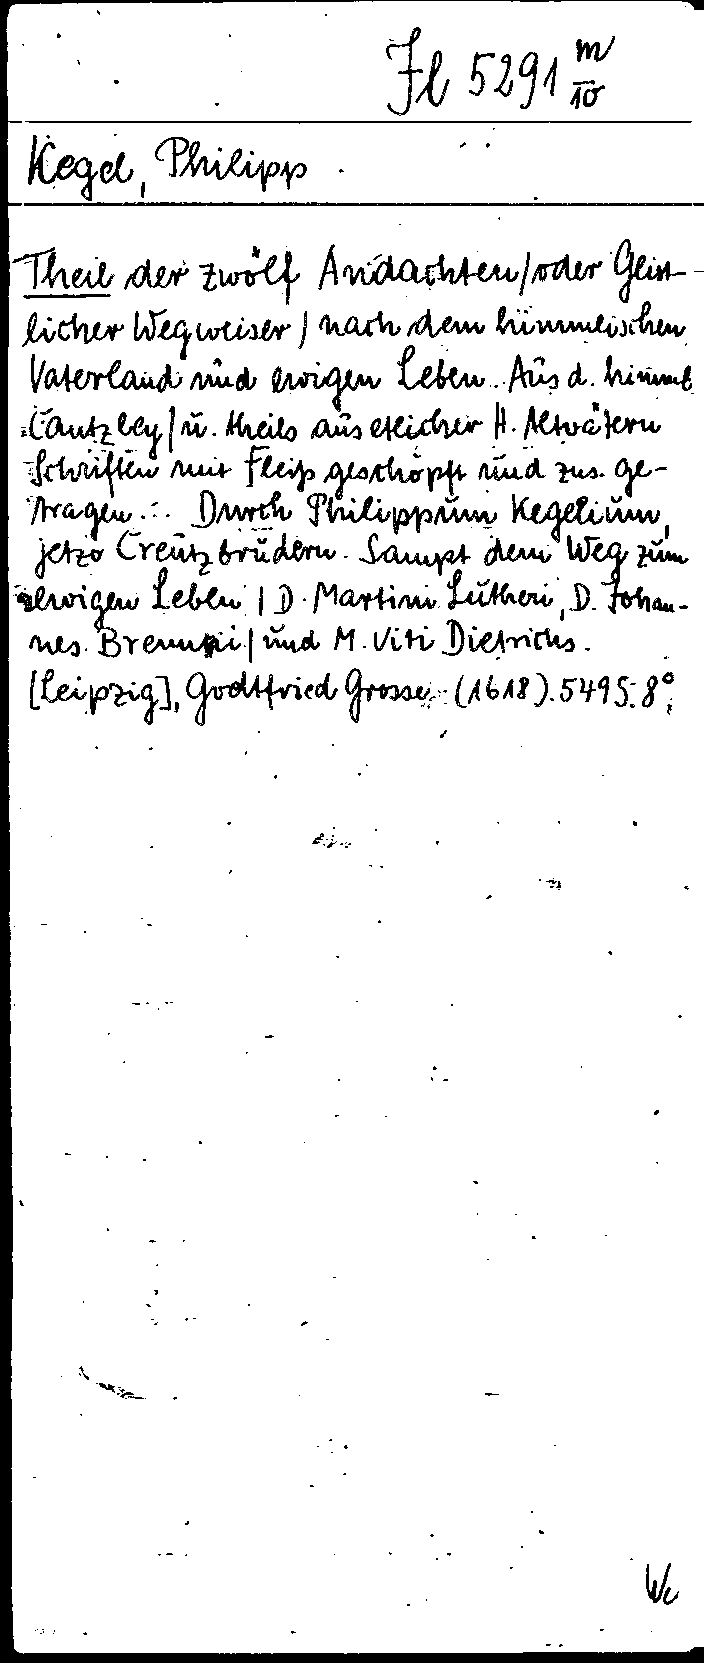 Jl 5291 m/10
Kegel, Philipp
Theil der zwölf Andachten/oder Geist-
licher Wegweiser/nach dem himmelischen
Vaterland und ewigen Leben. Aus d. himml
Cantzley/u. theils aus etlicher H. Altvätern
Schriften mit Fleiß geschöpft und zus. ge-
tragen... Durch Philippum Kegelium,
jetzo Creutzbrüdern. Sampt dem Weg zum
ewigen Leben / D. Martini Lutheri, D. Johan-
nes Brennti/und M. Viti Dietrichs.
[Leipzig], Godtfried Grosse (1618). 549 S. 8°
We